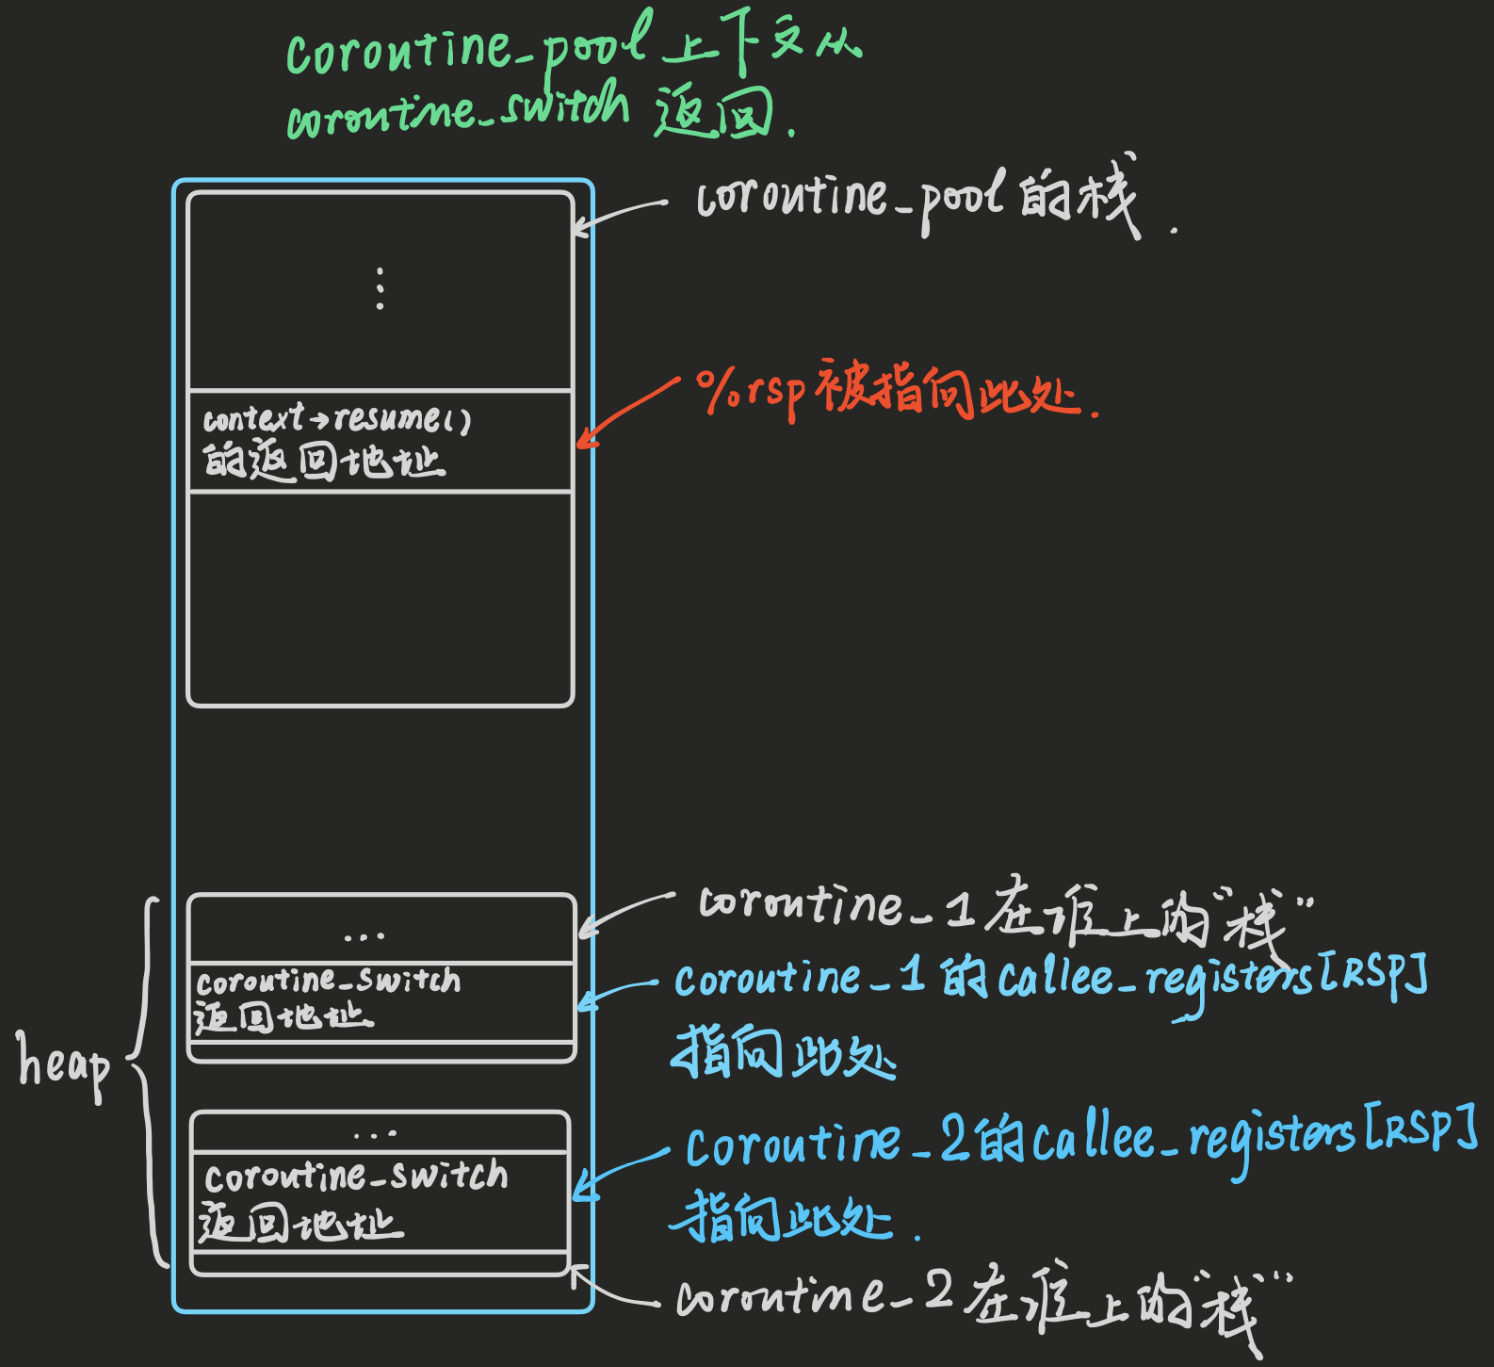 coroutine_pool 上下文从
coroutine_switch 返回.
coroutine_pool 的栈.
%rsp 被指向此处.
context→resume()
的返回地址
coroutine_1 在谁上的"栈"
...
coroutine_switch
返回地址
coroutine_1 的 callee_registers[RSP]
指向此处
heap
...
coroutine_switch
返回地址
coroutine_2 的 callee_registers[RSP]
指向此处.
coroutine_2 在谁上的"栈"